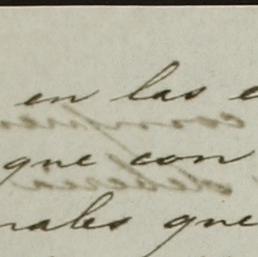 en las e
que con
nales que